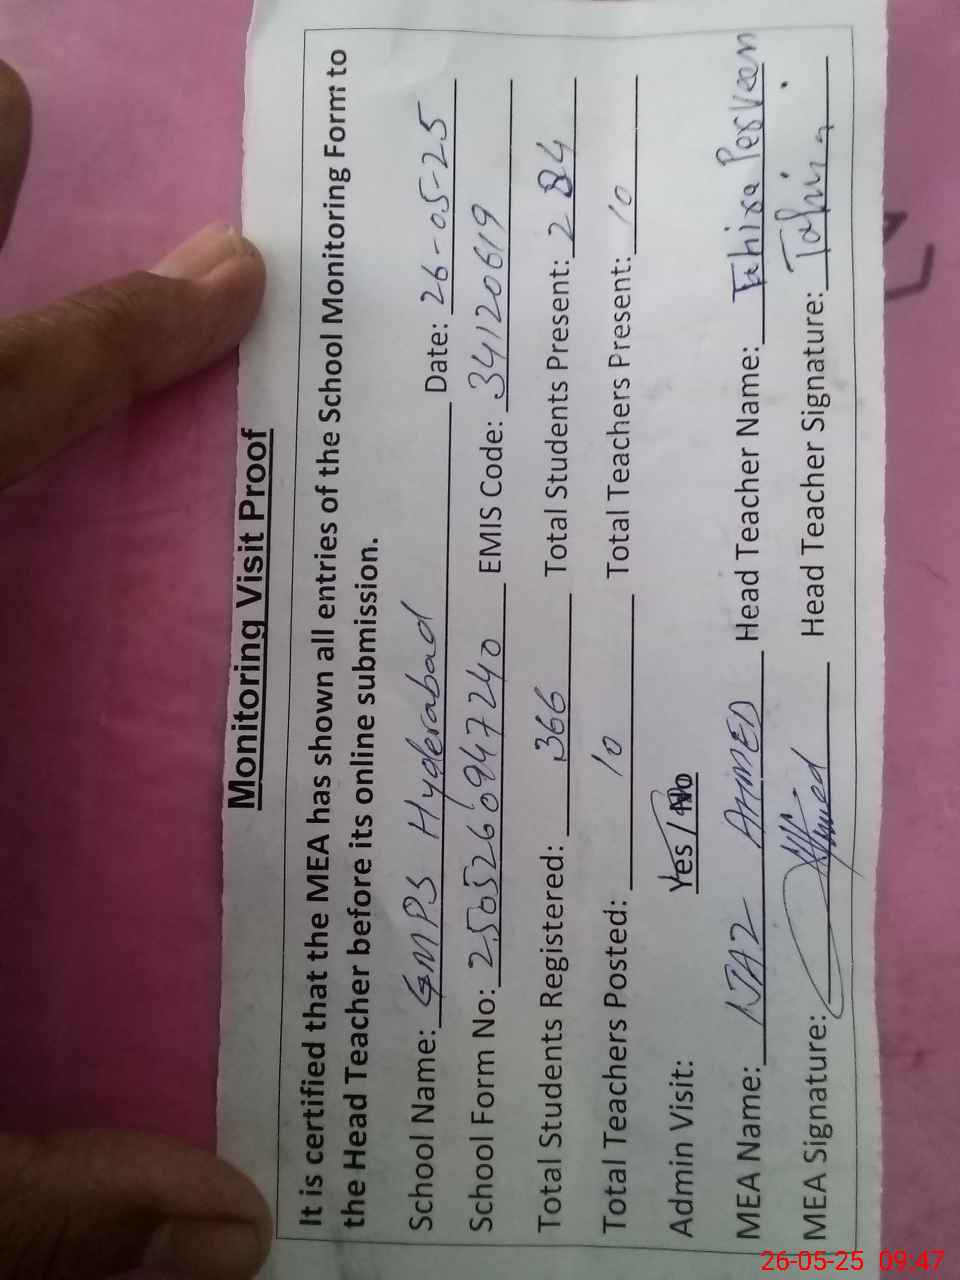 Monitoring Visit Proof
It is certified that the MEA has shown all entries of the School Monitoring Form to
the Head Teacher before its online submission.
School Name: GMPS Hyderabad Date: 26-05-25
School Form No: 2505260947240 EMIS Code: 34120619
Total Students Registered: 366 Total Students Present: 284
Total Teachers Posted: 10 Total Teachers Present: 10
Admin Visit: Yes / No
MEA Name: AHMED Head Teacher Name: Tahira Perveen
MEA Signature: Head Teacher Signature: Tahira
26-05-25 09:47